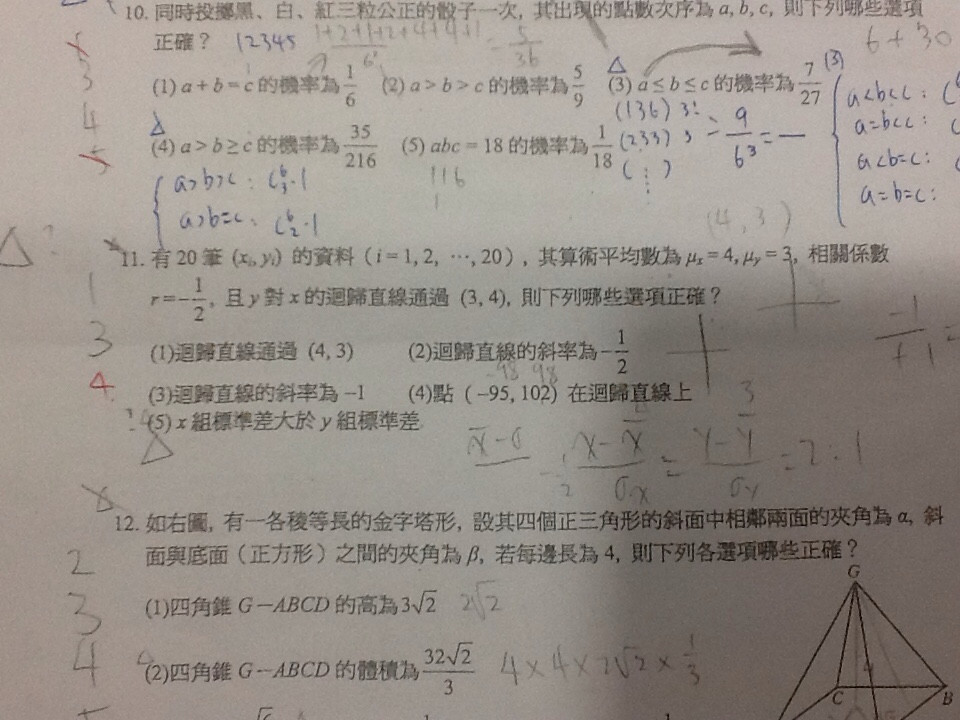 10. 同時投擲黑、白、紅三粒公正的骰子一次, 其出現的點數次序為 a, b, c, 則下列哪些選項
正確? 12345 1+2+1+2+4+4+1 / 6³ = 5/36 6+30
(1) a + b = c 的機率為 1/6 (2) a > b > c 的機率為 5/9 (3) a ≤ b ≤ c 的機率為 7/27
(136) 3!
(4) a > b ≥ c 的機率為 35/216 (5) abc = 18 的機率為 1/18 (233) 3 = 9/6³ =
(⋮)
a>b>c : C⁶₃·1 116
a>b=c : C⁶₂·1 1
(3)
a<b<c :
a=b<c :
a<b=c :
a=b=c :
3
4
5
(4, 3)
11. 有 20 筆 (xᵢ, yᵢ) 的資料 (i = 1, 2, ⋯, 20), 其算術平均數為 μₓ = 4, μᵧ = 3, 相關係數
r = −1/2, 且 y 對 x 的迴歸直線通過 (3, 4), 則下列哪些選項正確?
(1)迴歸直線通過 (4, 3) (2)迴歸直線的斜率為 −1/2
-98 98
(3)迴歸直線的斜率為 −1 (4)點 (−95, 102) 在迴歸直線上
(5) x 組標準差大於 y 組標準差
1
3
4
-1/+1 =
3
x̄-0 -1/2 x-x̄/σx = y-ȳ/σy = 2 : 1
12. 如右圖, 有一各稜等長的金字塔形, 設其四個正三角形的斜面中相鄰兩面的夾角為 α, 斜
面與底面 (正方形) 之間的夾角為 β, 若每邊長為 4, 則下列各選項哪些正確?
(1)四角錐 G−ABCD 的高為 3√2 2√2
(2)四角錐 G−ABCD 的體積為 32√2/3 4×4×2√2×1/3
2
3
4
G
4
C
B